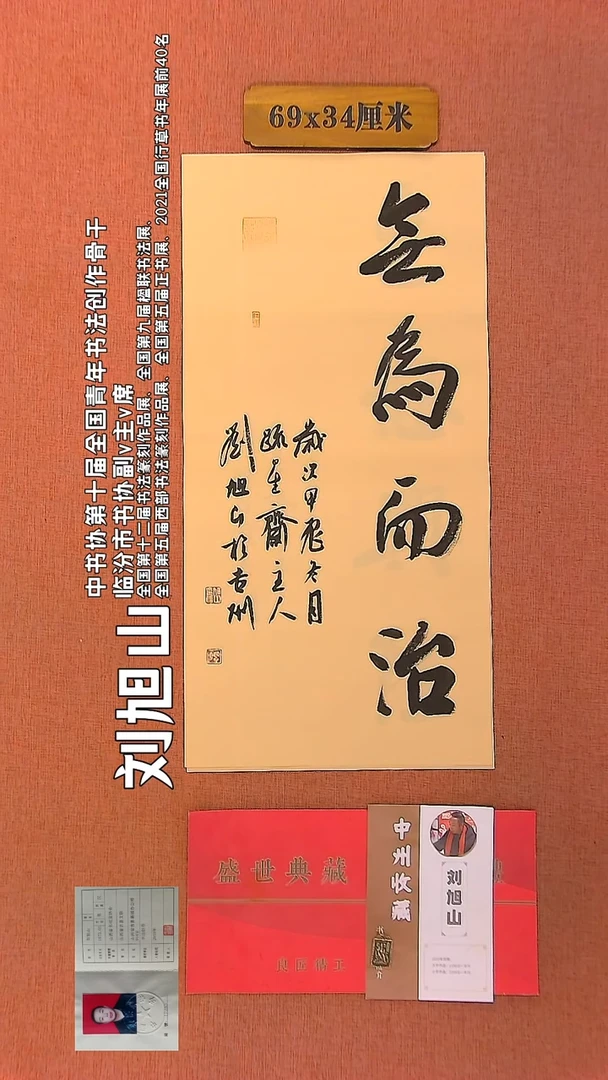 69x34厘米
無為而治
歲次甲辰六月
疏星齋主人
劉旭山於吉州
刘旭山
中书协第十届全国青年书法创作骨干
临汾市书协副v主v席
全国第十二届书法篆刻作品展、全国第九届楹联书法展、
全国第五届西部书法篆刻作品展、全国第五届正书展、2021全国行草书年展前40名
盛世典藏
中州收藏
刘旭山